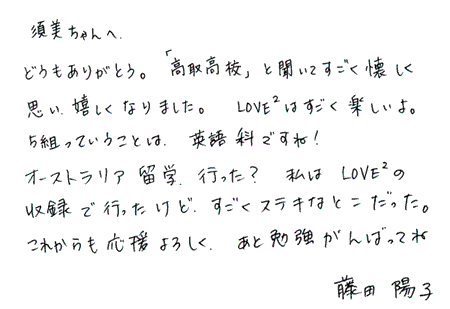 須美ちゃんへ.
どうもありがとう。「高取高校」と聞いてすごく懐しく
思い、嬉しくなりました。 LOVE²はすごく楽しいよ。
5組っていうことは、英語科ですね！
オーストラリア 留学、行った？ 私は LOVE²の
収録で行ったけど、すごくステキなとこだった。
これからも応援よろしく、あと勉強がんばってね
藤田 陽子